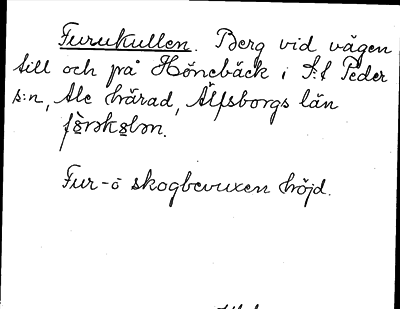 Furukullen. Berg vid vägen
till och på Hönebäck i S:t Peder
s:n, Ale härad, Älfsborgs län

Fur-o skogbevuxen höjd.